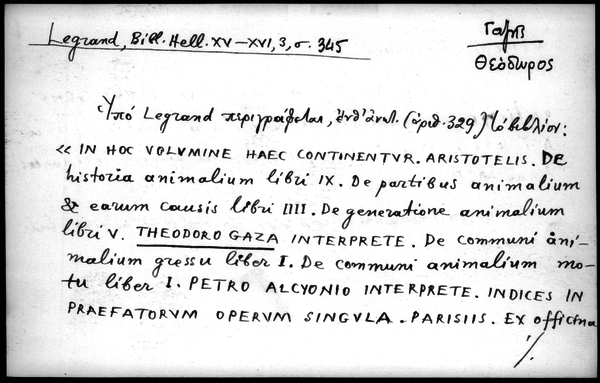 Legrand, Bibl. Hell. XV–XVI, 3, σ. 345
Γαζῆς
Θεόδωρος
Ὑπό Legrand περιγράφεται, ἐνθ' ἀνωτ. (ἀριθ. 329) τό βιβλίον:
« IN HOC VOLVMINE HAEC CONTINENTVR. ARISTOTELIS. DE
historia animalium libri IX. De partibus animalium
& earum causis libri IIII. De generatione animalium
libri V. THEODORO GAZA INTERPRETE. De communi ani-
malium gressu liber I. De communi animalium mo-
tu liber I. PETRO ALCYONIO INTERPRETE. INDICES IN
PRAEFATORVM OPERVM SINGVLA. PARISIIS. Ex officina
./.